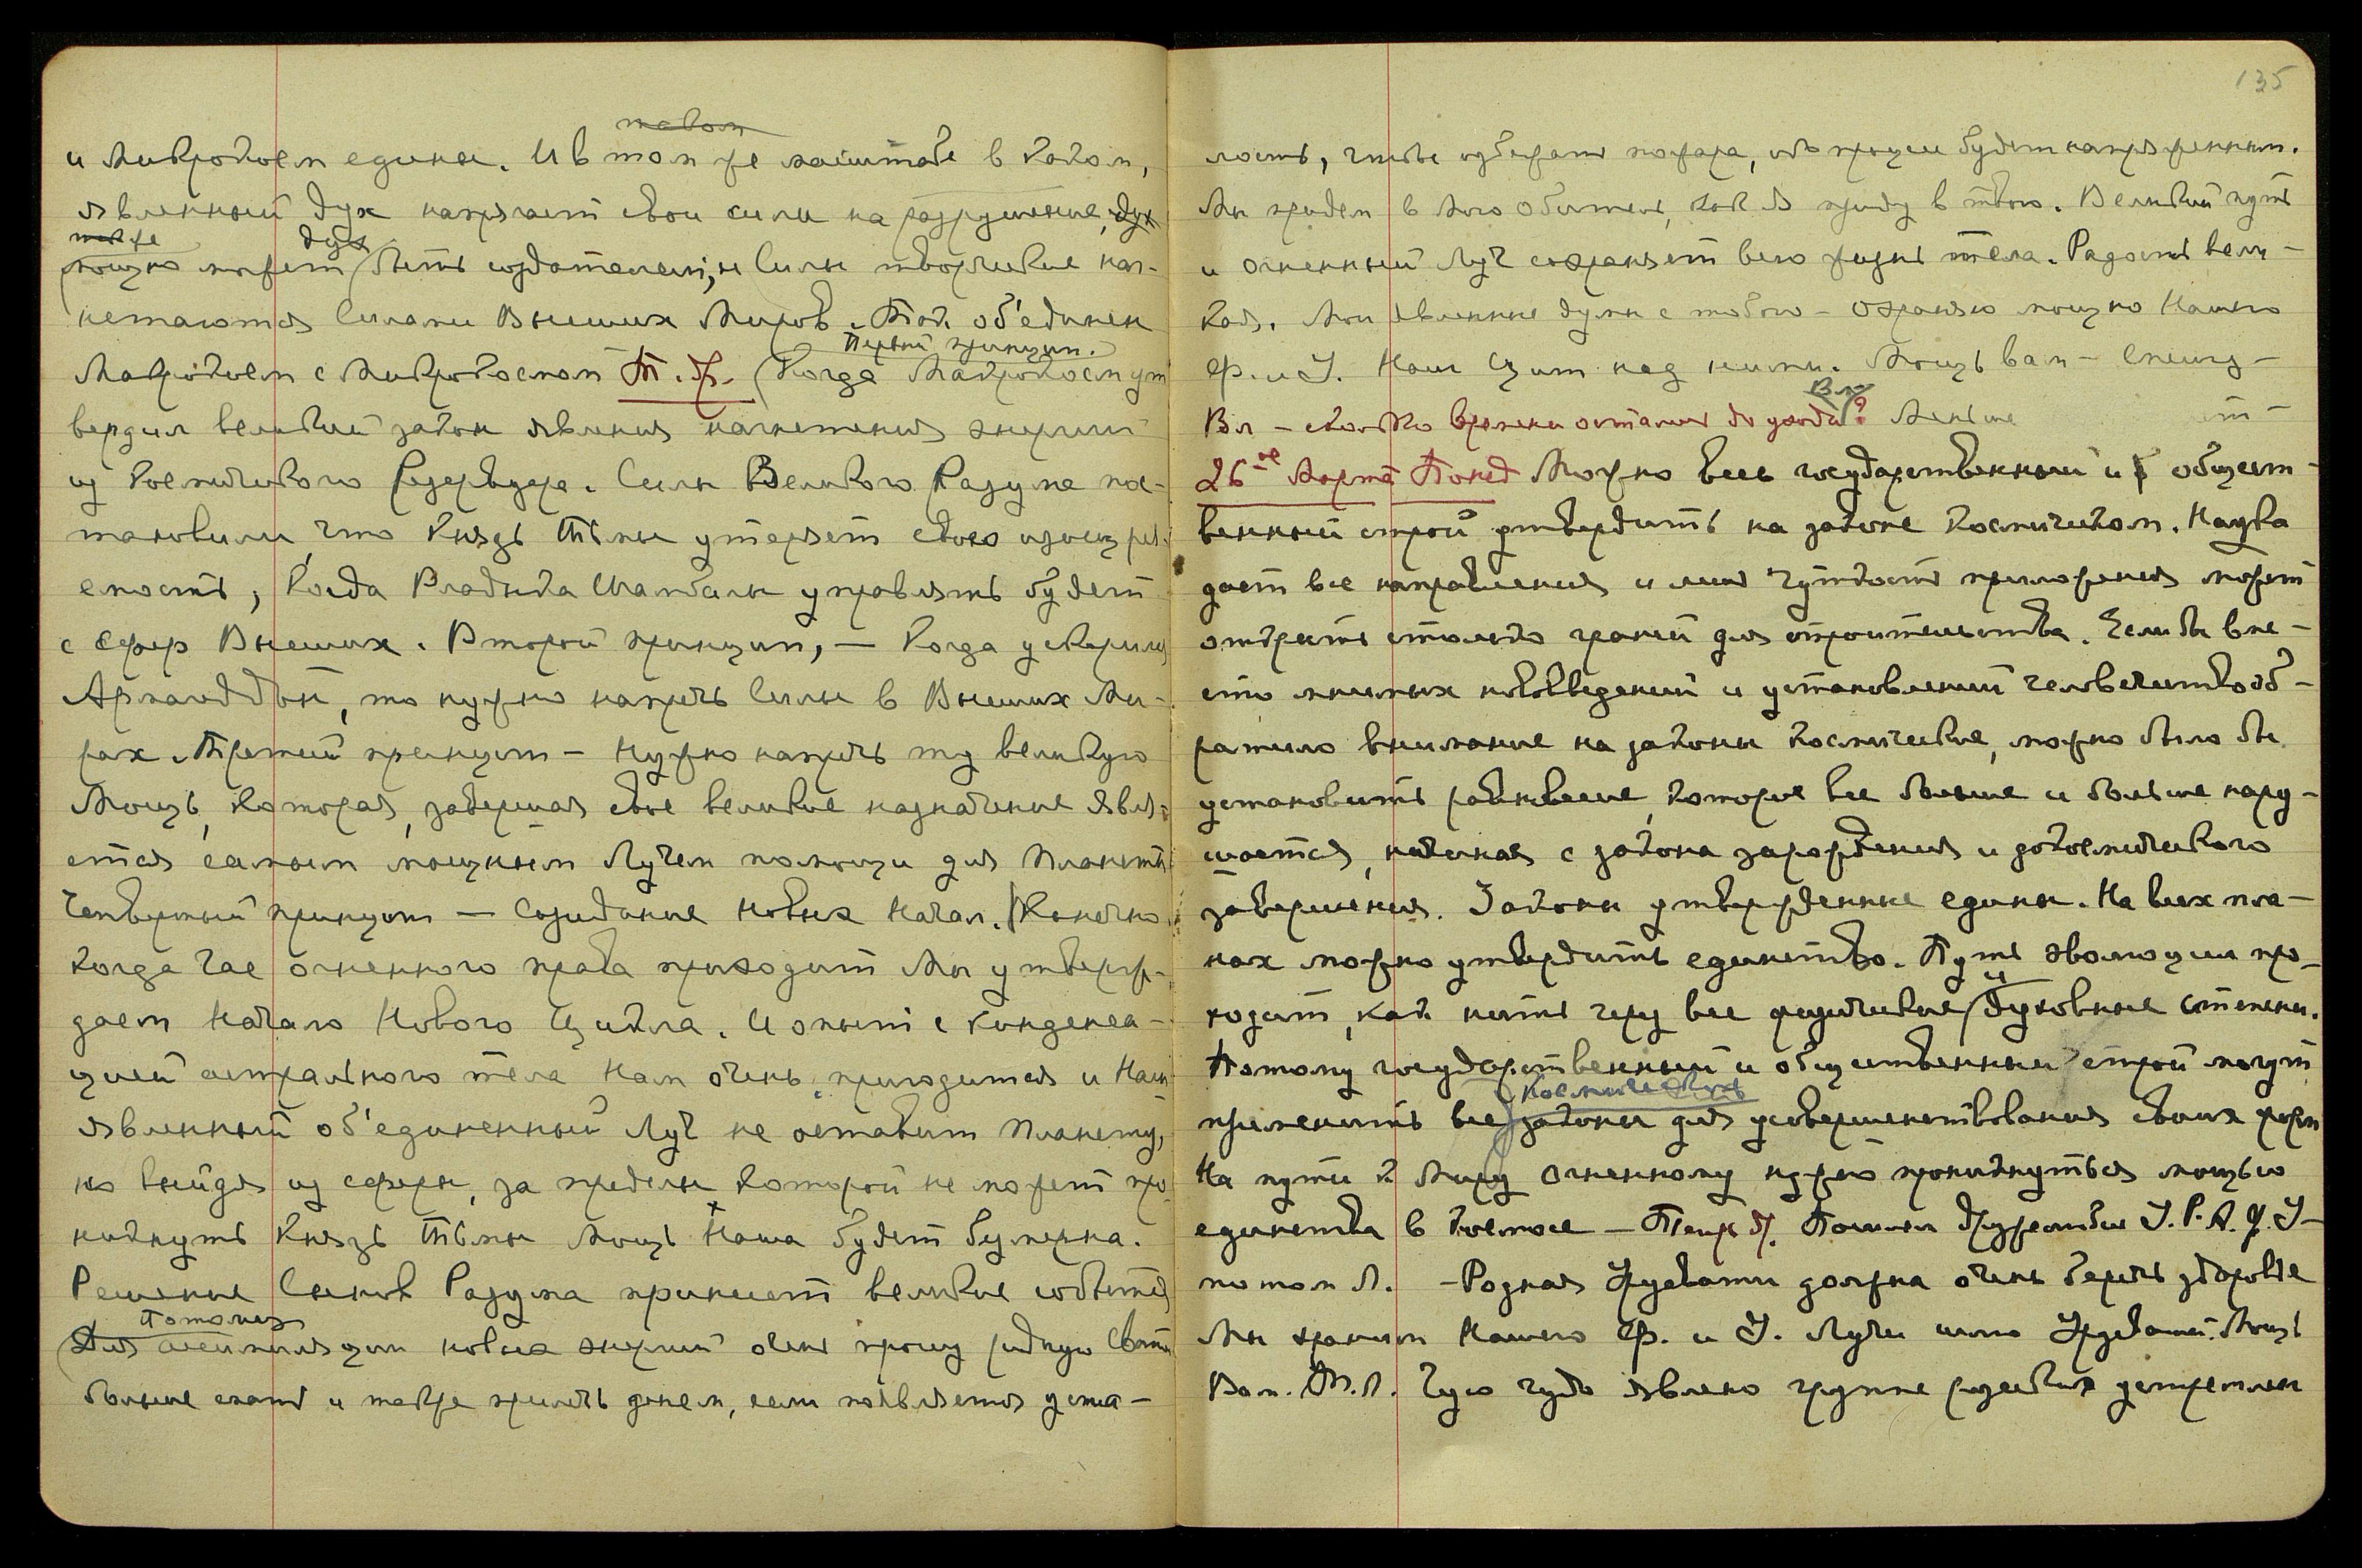 таком
и Микрокосм едины. И в том же масштабе в каком,
явленный дух напрягает свои силы на разрушение, дух
так же дух
мощно может быть создателем, и Силы творческие наг-
нетаются Силами Высших Миров. Так об'единен
Первый принцип.
Макрокосм с Микрокосмом Т. Д. Когда Макрокосм ут
вердил великий закон явления нагнетения энергии
из космического резервуара. Силы Великого Разума пос-
тановили, что Князь Тьмы утеряет свою изощрен
емость, когда Владыка Шамбалы управлять будет
с Сфер Высших. Второй принцип, — когда ускорился
Армагеддон, то нужно напречь Силы в Высших Ми-
рах. Третий принцип — Нужно напречь ту великую
Мощь, которая, завершая свое великое назначение явля-
ется самым мощным Лучем помощи для планеты
Четвертый принцип — Созидание новых Начал. Конечно
когда Час огненного права приходит Мы утверж-
даем Начало Нового Цикла. И опыт с конденса-
цией астрального тела Нам очень пригодится и Наш
явленный об'единенный Луч не оставит планету,
но выйдя из сферы, за пределы которой не может про
никнуть Князь Тьмы Мощь Наша будет безмерна.
Решение Сынов Разума принесет великие события
Потому
Для ассимиляции новых энергий очень прошу родную Свати
больше спать и также прилечь днем, если появляется уста-
135
лость, чтобы избежать пожара, ибо процесс будет напряженным.
Мы придем в мою Обитель, как Я приду в твою. Великий путь
и огненный Луч сохраняет всю жизнь тела. Радость вели-
кая. Мои явленные думы с тобою — охраняю мощно Нашего
Ф. и У. Наш Щит над ними. Мощь вам —
Вл — сколько времени осталось до ухода? Меньше
26-ое Марта Понед Можно весь государственный и общест-
венный строй утвердить на законе космическом. Наука
дает все направления и лишь чуткость приложения может
открыть столько граней для строительства. Если бы вме-
сто мнимых нововведений и установлений человечество об-
ратило внимание на законы космические, можно было бы
установить равновесие, которое все больше и больше нару-
шается, начиная с закона зарождения и до космического
завершения. Законы утвержденные едины. На всех пла-
нах можно утвердить единство. Путь эволюции про-
и
ходит, как нить через все физические духовные степени.
Потому государственный и общественный строй могут
Космические
применить все законы для усовершенствования своих форм
На пути к Миру Огненному нужно проникнуться мощью
единства в Космосе — У. Р. А. Ф. У —
потом Л. — Родная Урусвати должна очень беречь здоровье
Мы храним Нашего Ф. и У. Лучи шлю Урусвати. Мощь
Вам. М. Л. Чую чудо явлено группе устремлен